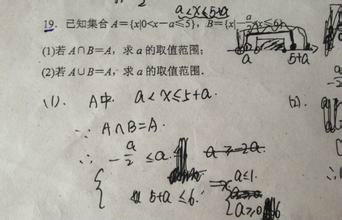 a<x≤5+a
19. 已知集合 A={x|0<x-a≤5}, B={x|-a/2<x≤6}
(1)若 A∩B=A, 求 a 的取值范围;
(2)若 A∪B=A, 求 a 的取值范围.
a 5+a
(1). A中. a<x≤5+a. (2).
∵ A∩B=A.
∴ -a/2≤a.
a≤1.
5+a≤6.
a≥0